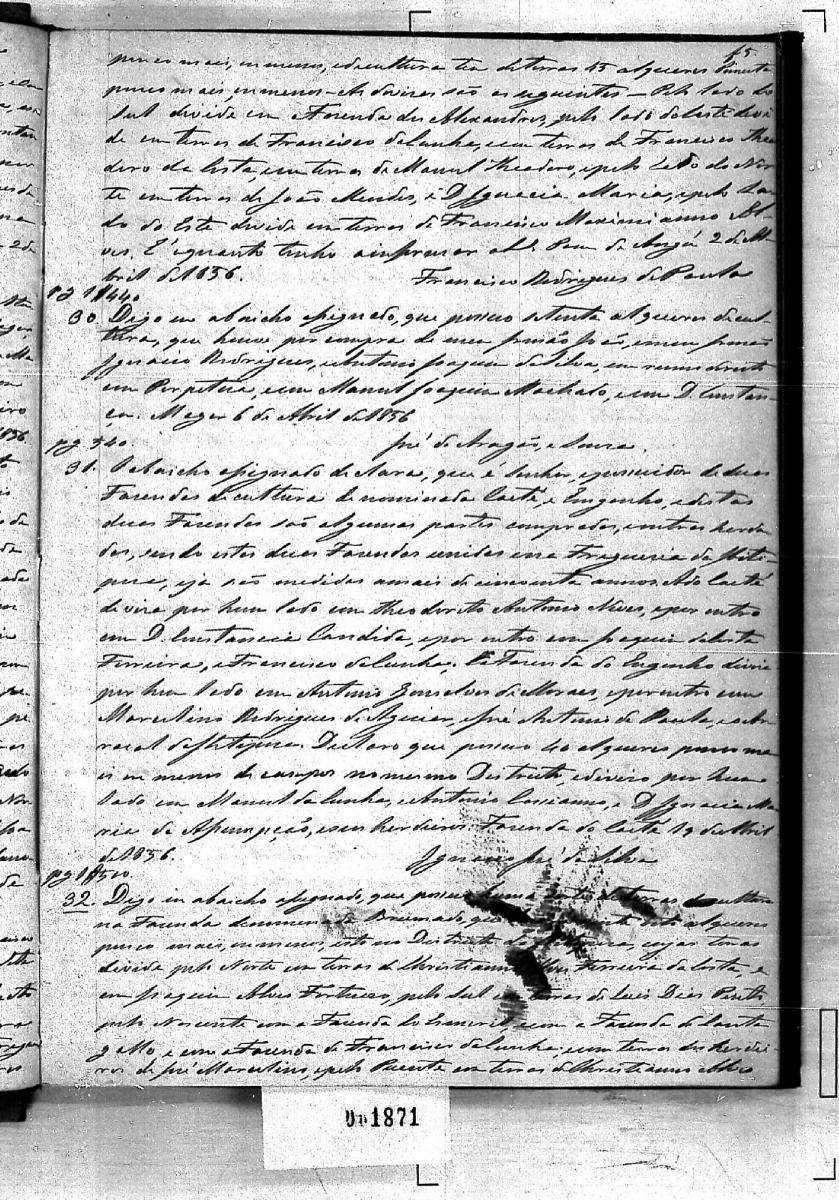 65.
pouco mais, ou menos, e de cultura tera de terras 45 alqueres
pouco mais, ou menos - As divizas são as seguintes - Pelo lado do
Sul divide em Fazenda dos Alexandres, pelo lado do leste divi
de em terras de Francisco da Cunha, e em terras de Francisco Theo
doro da Costa, e em terras de Manuel Theodoro, e pelo Lado do Nor
te em terras de João Mendes, e D. Ignacia Maria, e pelo La
do do Este divide em terras de Francisco Maximianno Al
ves. É o quanto tenho a informar a V.S. 2 de A
bril de 1856.
Francisco Rodrigues de Paula
pg 1440
30. Digo eu abaicho asignado, que posuo setenta alqueres de cul
tura, que houve por compra de meu Irmão José, e meu Irmão
Ignacio Rodrigues, e Antonio Joaquim da Silva, em
com Perpetua, e com Manuel Joaquim Machado, e com D. Constan
ça. 6 de Abril de 1856
José de Aragão, e Souza.
pg 540.
31. O abaicho asignado declara, que é Senhor, e possuidor de duas
Fazendas de cultura denominada Caeté, e Engenho, e destas
duas Fazendas são algumas partes compradas, e outras herda
das, sendo estas duas Fazendas unidas em a Freguezia da
e ja são medidas a mais de cincoenta annos. A do Caeté
diviza por hum lado com Theodorito Antonio Neves, e por outro
com D. Constancia Candida, e por outro com Joaquim da Costa
Ferreira, e Francisco da Cunha; e a Fazenda do Engenho diviza
por hum lado com Antonio Gonsalves de Moraes, e por outro com
Marcelino Rodrigues de Aguiar, e José Antonio de Paula, e o Ar
raial de Declaro que posuo 40 alqueres pouco ma
is ou menos de campos no mesmo Destricto, e divizo, por hum
lado com Manuel da Cunha, e Antonio Cassianno, e D. Ignacia Ma
ria de Asumpção, e seus herdeiros. Fazenda do Caeté 19 de Abril
de 1856.
Ignacio José da Silva
pg 1500
32. Digo eu abaicho asignado, que posuo huma de terras de cultura
na Fazenda denominada alqueres
pouco mais, ou menos, esta no Destricto da cujas terras
divide pelo Norte em terras de Christianno Alves Ferreira da Costa, e
com Joaquim Alves pelo Sul em terras de Luis Dias
pelo Nascente com a Fazenda do e com a Fazenda de Santa
e com a Fazenda de Francisco da Cunha; e com terras dos Herdei
ros de José Marcelino, e pelo Poente em terras de Christianno Alves
1871